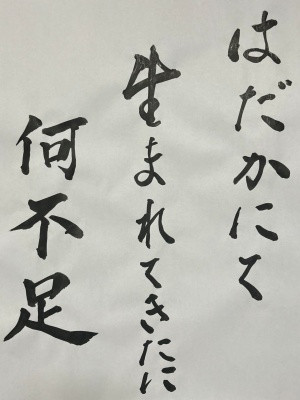 はだかにて
生まれてきたに
何不足